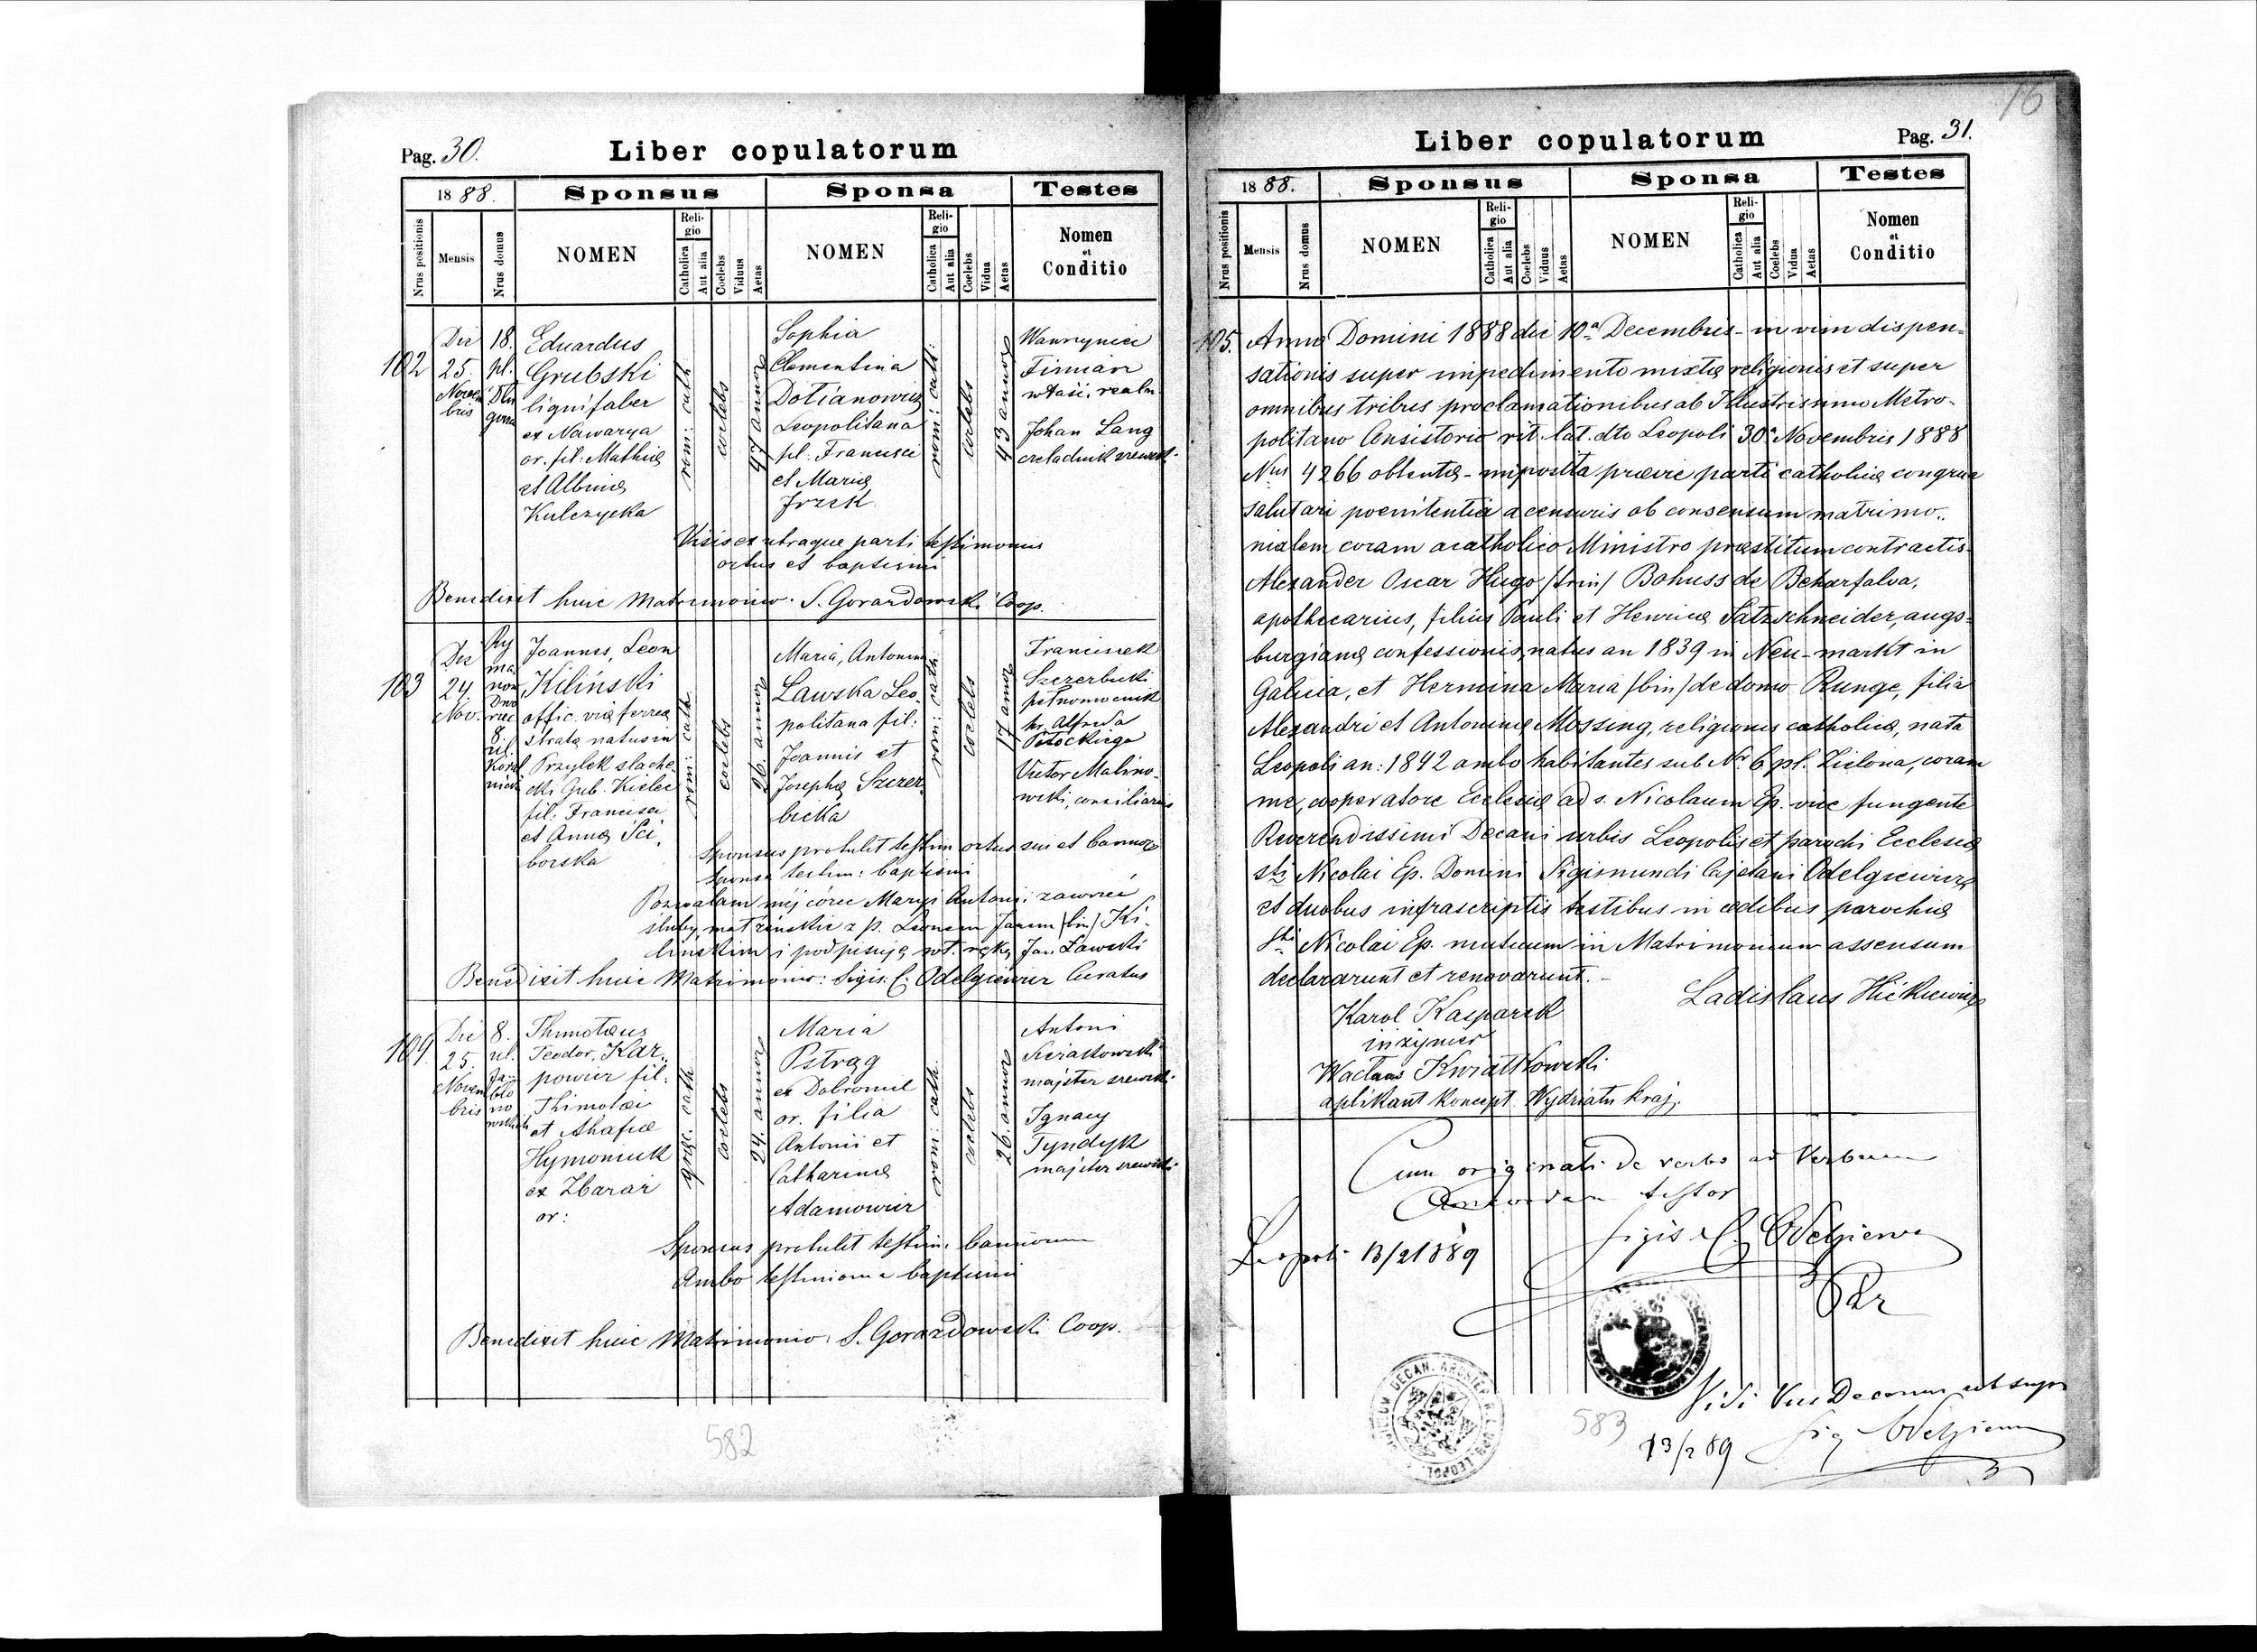 Pag. 30.
Liber copulatorum
1888.
Sponsus
Sponsa
Testes
Nrus positionis
Mensis
Nrus domus
NOMEN
Religio
Catholica
Aut alia
Coelebs
Viduus
Aetas
NOMEN
Religio
Catholica
Aut alia
Coelebs
Vidua
Aetas
Nomen
et
Conditio
102
Die
25.
Novem
bris
18.
pł.
Dłu
gosza
Eduardus
Grubski
lignifaber
ex Nawarya
or. fil. Mathiæ
et Albinæ
Kulczycka
rom: cath
coelebs
47 annor
Sophia
Clementina
Dotianowicz
Leopolitana
fil. Francisci
et Mariæ
Jrzek
rom: cath:
coelebs
43 annor
Wawrzyniec
Firman
właśc. realn
Johan Lang
czeladnik szewski
Visis ex utraque parti testimoniis
ortus et baptismi
Benedixit huic Matrimonio. S. Gorazdowski Coop.
103
Die
24.
Nov.
Ry
ma
now
Dwo
rzec
8.
ul.
Joannes, Leon
Kiliński
offic. viæ ferreæ
stratæ natus in
Przyłęk
Gub. Kielce
fil. Francisci
et Annæ Ści
borska
rom: cath
coelebs
26. annor
Maria, Antonina
Lawska Leo
politana fil:
Joannis et
Josephæ Szczer
bicka
rom: cath
coelebs
17 annor
Francissek
Szczerbicki
pełnomocnik
hr. Alfreda
Potockiego
Victor Malino-
wski, consiliarius
Sponsus protulit testim ortus sui et bannor
Sponsa testim: baptismi
Pozwalam mej córce Maryi Antoni: zawrzeć
śluby małżeńskie z p. Leonem Janem (bin) Ki-
lińskim i podpisuję wł. ręką Jan Lawski
Benedixit huic Matrimonio: Sigis. C. Odelgiewicz Curatus
104
Die
25.
Novem
bris
8.
ul.
Ja-
bło
no
wskich
Thimotæus
Teodor, Kar
powicz fil:
Thimotæi
et Ahafiæ
Hymoniuk
ex Zbaraż
or:
græc. cath
coelebs
24. annor
Maria
Pstrąg
ex Dobromil
or. filia
Antonii et
Catharinæ
Adamowicz
rom: cath.
coelebs
26. annor
Antoni
Kwiatkowski
majster szewski
Ignacy
Tyndyk
majster szewski
Sponsus protulit testim: bannorum
Ambo testimonia baptismi
Benedixit huic Matrimonio: S. Gorazdowski Coop.
582
76
Liber copulatorum
Pag. 31.
1888.
Sponsus
Sponsa
Testes
Nrus positionis
Mensis
Nrus domus
NOMEN
Religio
Catholica
Aut alia
Coelebs
Viduus
Aetas
NOMEN
Religio
Catholica
Aut alia
Coelebs
Vidua
Aetas
Nomen
et
Conditio
105. Anno Domini 1888 die 10a Decembris - in vim dispen-
sationis super impedimento mixtæ religionis et super
omnibus tribus proclamationibus ab Illustrissimo Metro-
politano Consistorio rit. lat. dto Leopoli 30a Novembris 1888
Nus 4266 obtentæ - imposita prævie parti catholicæ congrua
salutari poenitentia a censuris ob consensum matrimo-
nialem coram acatholico Ministro præstitum contractis
Alexander Oscar Hugo /trin/ Bohuss de Beharfalva,
apothecarius, filius Pauli et Henricæ Satzschneider, augs-
burgianæ confessionis, natus an 1839 in Neu-markt in
Galicia, et Hermina Maria /bin/ de domo Runge, filia
Alexandri et Antoninæ Mossing, religionis catholicæ, nata
Leopoli an: 1842 ambo habitantes sub Nr 6 pł. Zielona, coram
me, cooperatore Ecclesiæ ad s. Nicolaum Ep. vice fungente
Reverendissimi Decani urbis Leopolis et parochi Ecclesiæ
sti Nicolai Ep. Domini Sigismundi Cajetani Odelgiewicz
et duobus infrascriptis testibus in ædibus parochiæ
Sti Nicolai Ep. mutuum in Matrimonium assensum
declararunt et renovarunt. -
Ladislaus Hićkiewicz
Karol Kasparek
inżynier
Wacław Kwiatkowski
aplikant koncept. Wydziału kraj.
Cum originali de verbo ad Verbum
Concordare testor
Leopoli 13/2 1889
Sigis C Odelgiewicz
Vidi Vice Decanus ut supra
583
13/2 89
Sig Odelgiewicz